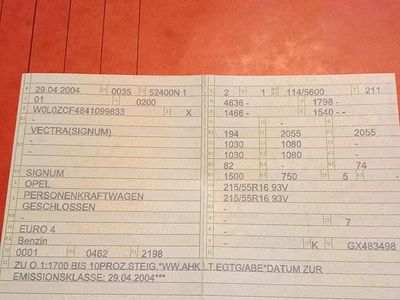 29.04.2004 0035 52400N 1
01 0200
W0L0ZCF4841099833 X
-
VECTRA(SIGNUM)
-
-
SIGNUM
OPEL
PERSONENKRAFTWAGEN
GESCHLOSSEN
-
EURO 4
Benzin
0001 0462 2198
2 1 114/5600 211
4636 - 1798 -
1466 - 1540 - -
-
194 2055 2055
1030 1080 -
1030 1080 -
82 - 74
1500 750 5 -
215/55R16 93V
215/55R16 93V
-
- 7
K GX483498
ZU O.1:1700 BIS 10PROZ.STEIG.*WW.AHK LT.EGTG/ABE*DATUM ZUR
EMISSIONSKLASSE: 29.04.2004***